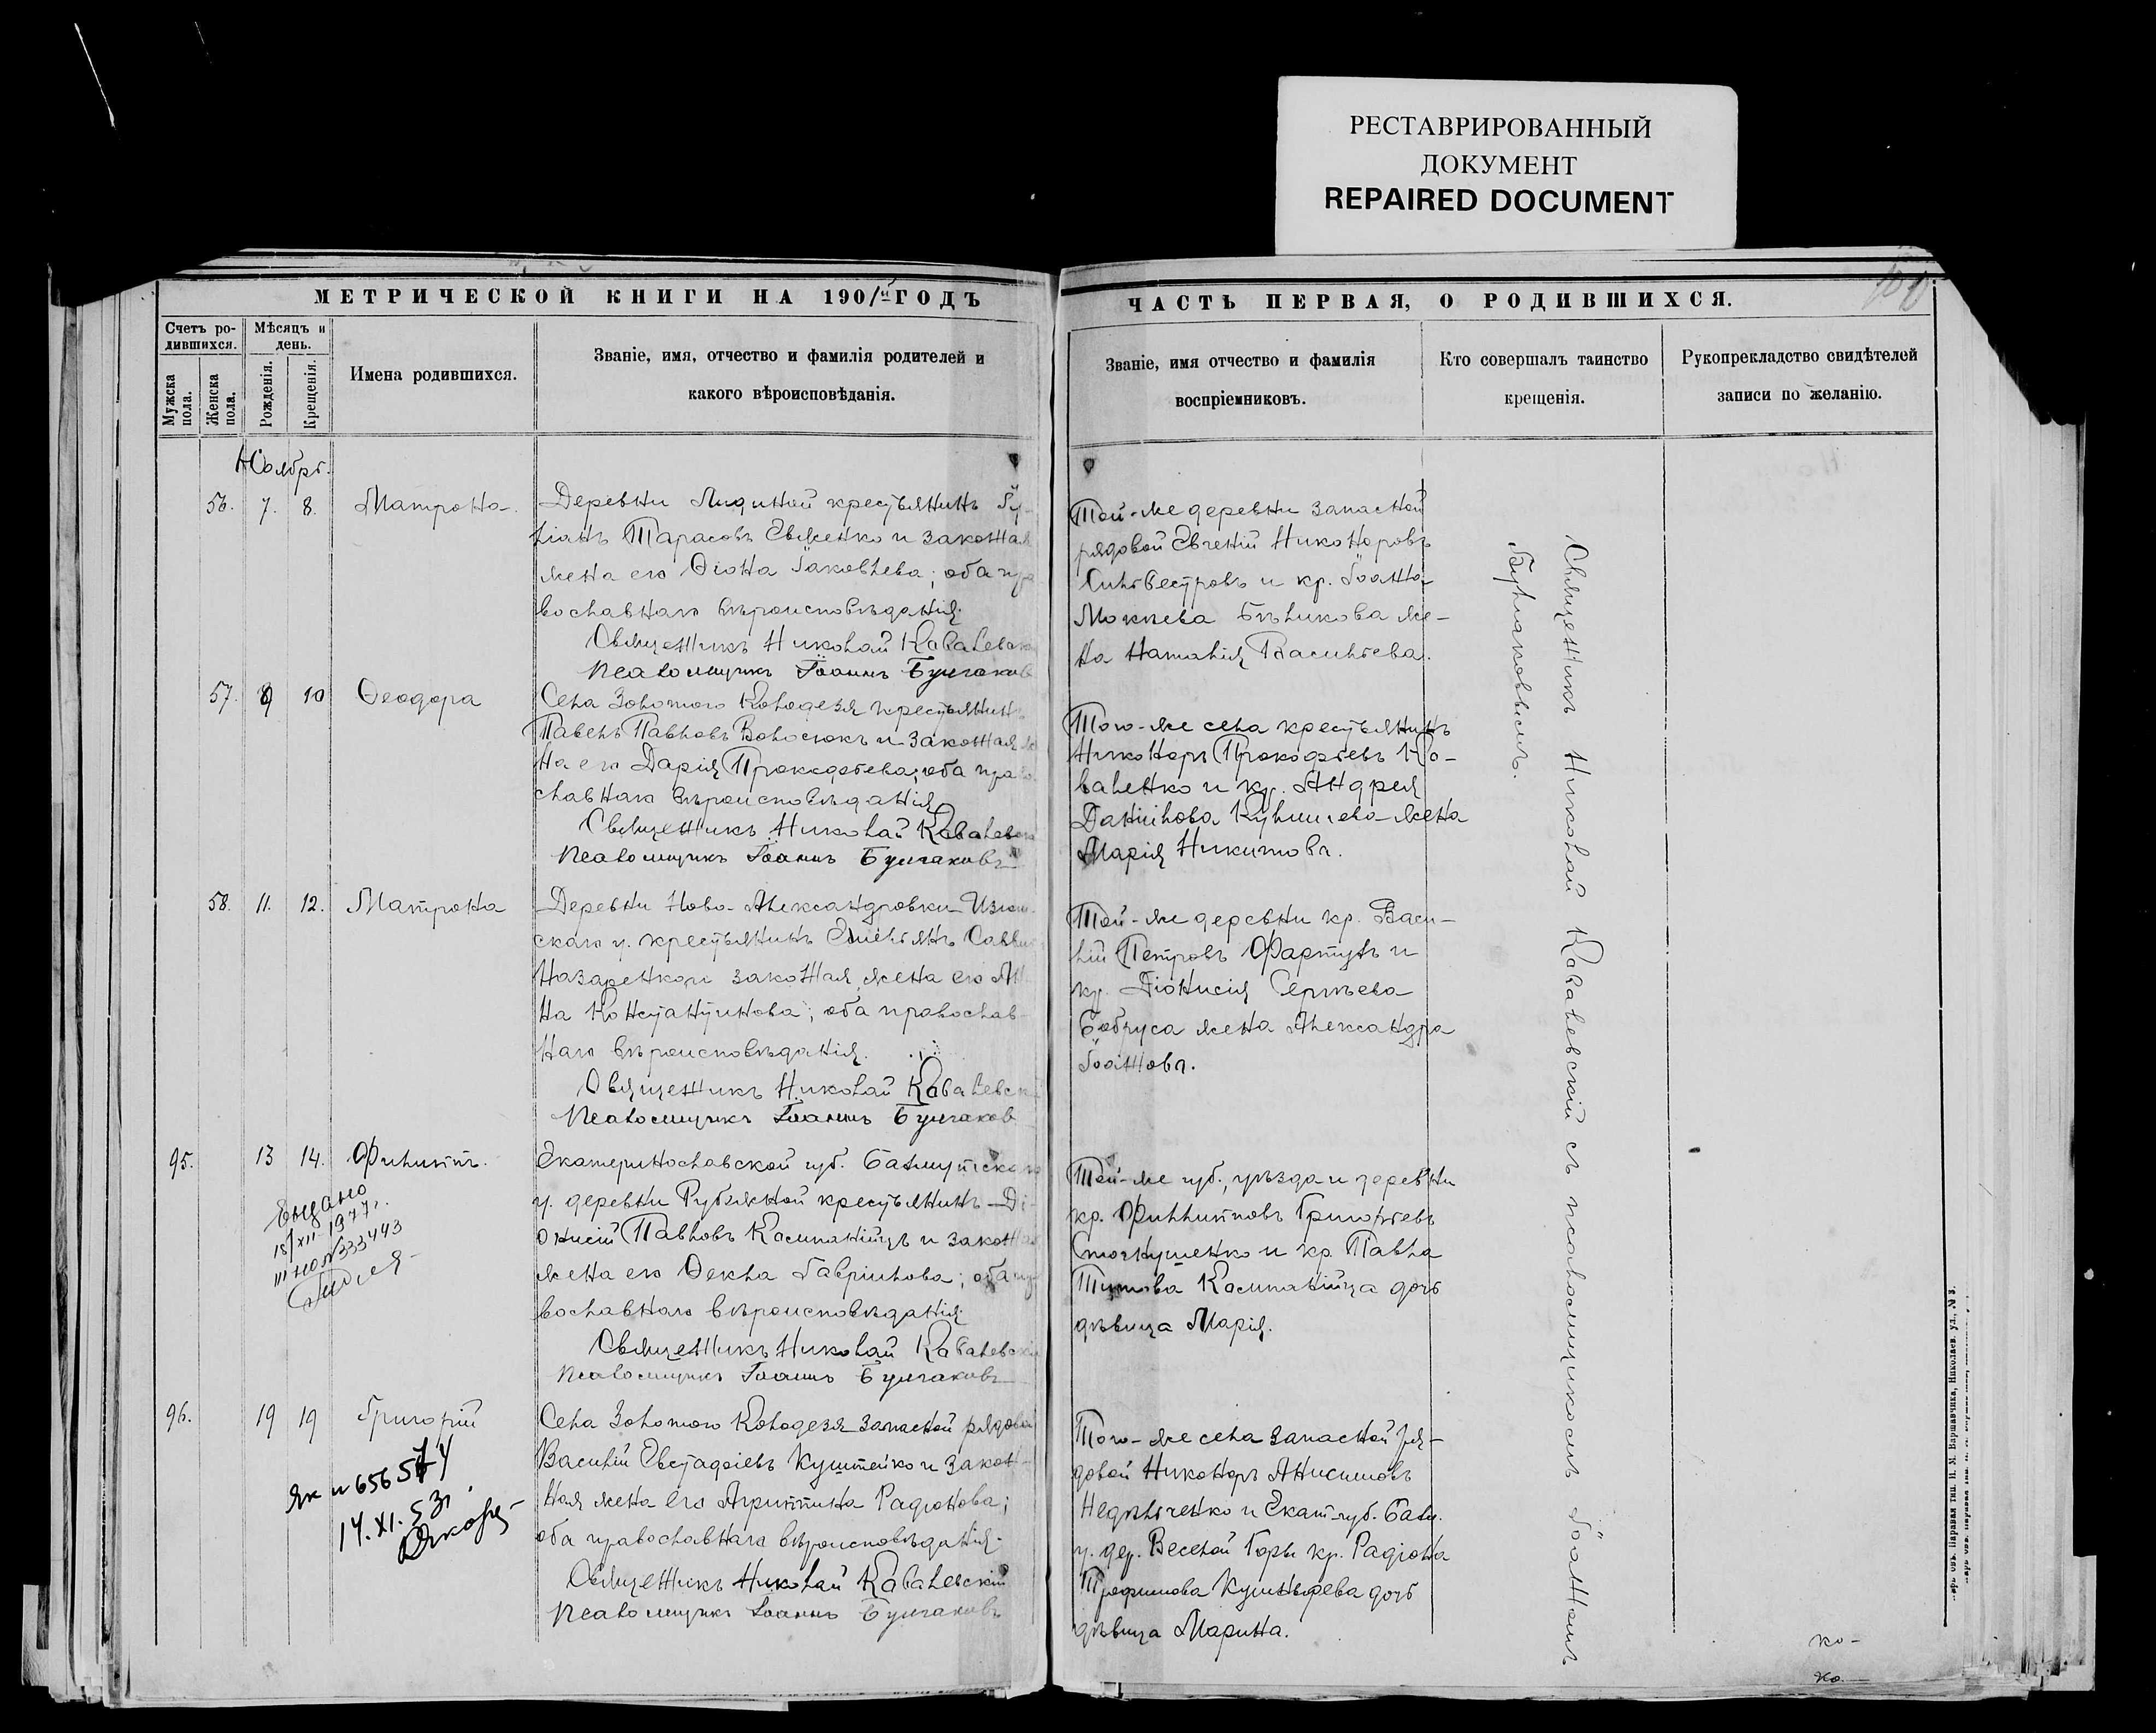 РЕСТАВРИРОВАННЫЙ
ДОКУМЕНТ
REPAIRED DOCUMENT
МЕТРИЧЕСКОЙ КНИГИ НА 1901й ГОДЪ
Счетъ ро-
дившихся.
Мужска
пола.
Женска
пола.
Мѣсяцъ и
день.
Рожденія.
Крещенія.
Имена родившихся.
Званіе, имя, отчество и фамилія родителей и
какого вѣроисповѣданія.
Ноябрь.
56. 7. 8. Матрона.
Деревни крестьянинъ
Тарасовъ Евменко и законная
жена его Ѳіона Іаковлева; оба пра
вославнаго вѣроисповѣданія.
Священникъ Николай Ковалевск
Псаломщикъ Іоаннъ Булгаков
57. 9 10 Ѳеодора
Села Золотого Колодезя крестьянинъ
Павелъ Павловъ Волосюкъ и законная же
на его Дарія Прокофьева; оба право
славнаго вѣроисповѣданія
Священникъ Николай Ковалевск
Псаломщикъ Іоаннъ Булгаковъ
58. 11. 12. Матрона
Деревни Ново-Александровки Изюм-
скаго у. крестьянинъ Емельянъ Савви
Назаренко и законная жена его Ан
на Константинова; оба православ-
наго вѣроисповѣданія.
Священникъ Николай Ковалевск
Псаломщикъ Іоаннъ Булгаков
95. 13 14. Филиппъ.
Екатеринославской губ. Бахмутскаго
у. деревни Рубежной крестьянинъ Ді-
онисій Павловъ Компаніецъ и законная
жена его Ѳекла Гавріилова; оба пра
вославнаго вѣроисповѣданія
Священникъ Николай Ковалевскі
Псаломщикъ Іоаннъ Булгаковъ
Выдано
18/XII-1977г.
III НОЛ № 333443
96. 19 19 Григорій
Села Золотого Колодезя запасной рядовой
Василій Евстафіевъ и закон-
ная жена его Агриппина Радіонова;
оба православнаго вѣроисповѣданія.
Священникъ Николай Ковалевскій
Псаломщикъ Іоаннъ Булгаковъ
ЯК № 656574
14.XI.53г.
ЧАСТЬ ПЕРВАЯ, О РОДИВШИХСЯ.
Званіе, имя отчество и фамилія
воспріемниковъ.
Кто совершалъ таинство
крещенія.
Рукоприкладство свидѣтелей
записи по желанію.
Той-же деревни запасной
рядовой Евгеній Никоноровъ
Сильвестровъ и кр. Іоанна
Мокіева Бѣликова же-
на Наталія Васильева.
Того-же села крестьянинъ
Никоноръ Прокофьевъ Ко-
валенко и кр. Андрея
Даніилова жена
Марія Никитова.
Той-же деревни кр. Васи-
лій Петровъ Фартухъ и
кр. Діонисія Сергѣева
Бобруса жена Александра
Іоаннова.
Той-же губ., уѣзда и деревни
кр. Филипповъ Григорьевъ
и кр. Павла
Титова Компанійца дочь
дѣвица Марія.
Того-же села запасной ря-
довой Никоноръ Анисимовъ
Недѣльченко и Екат. губ. Бахм.
у. дер. Веселой Горы кр. Радіона
Трофимова дочь
дѣвица Марина.
Священникъ Николай Ковалевскій съ псаломщикомъ Іоанномъ
Булгаковымъ.
ко-
ко-